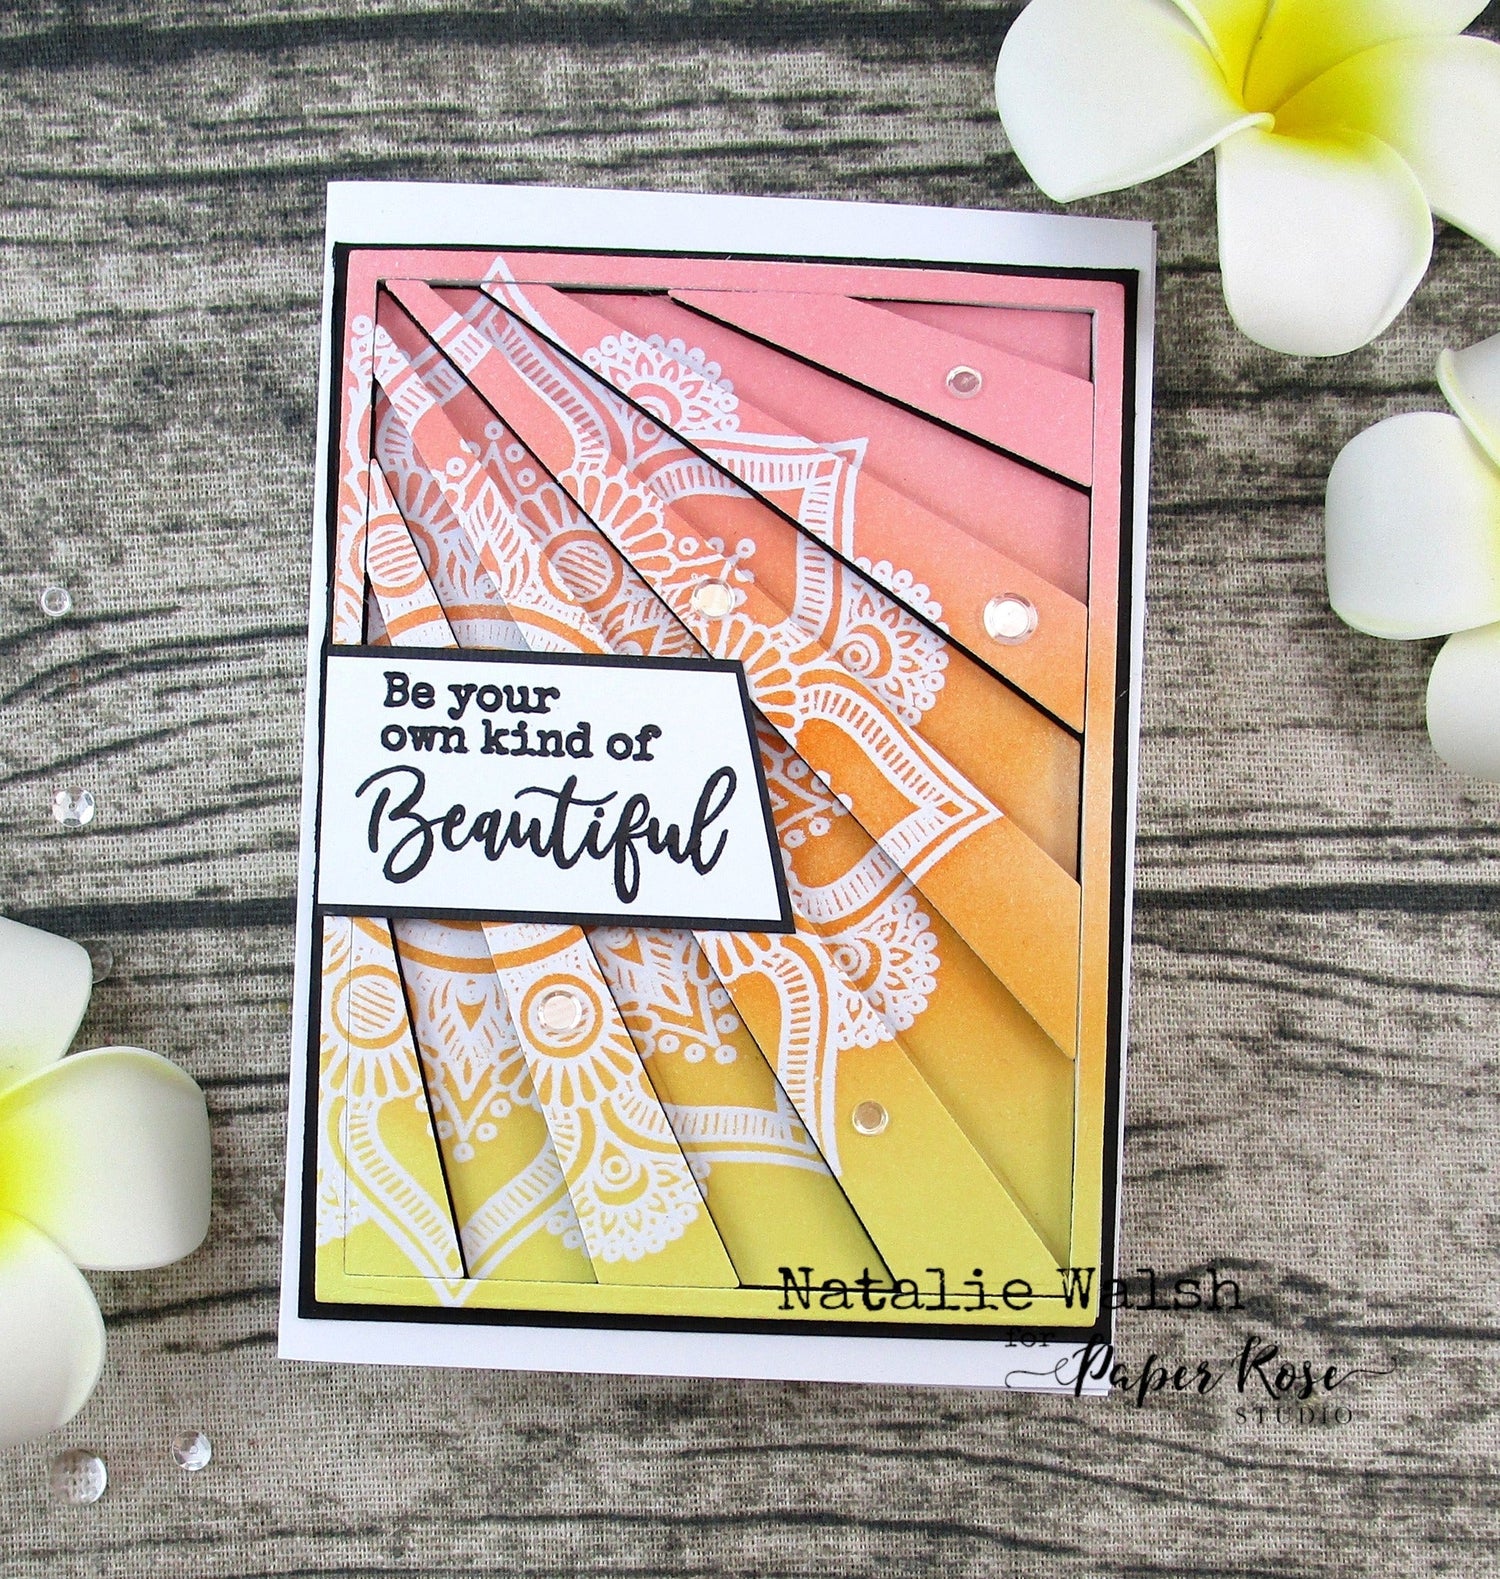 Be your
own kind of
Beautiful
Natalie Walsh
for
Paper Rose
STUDIO